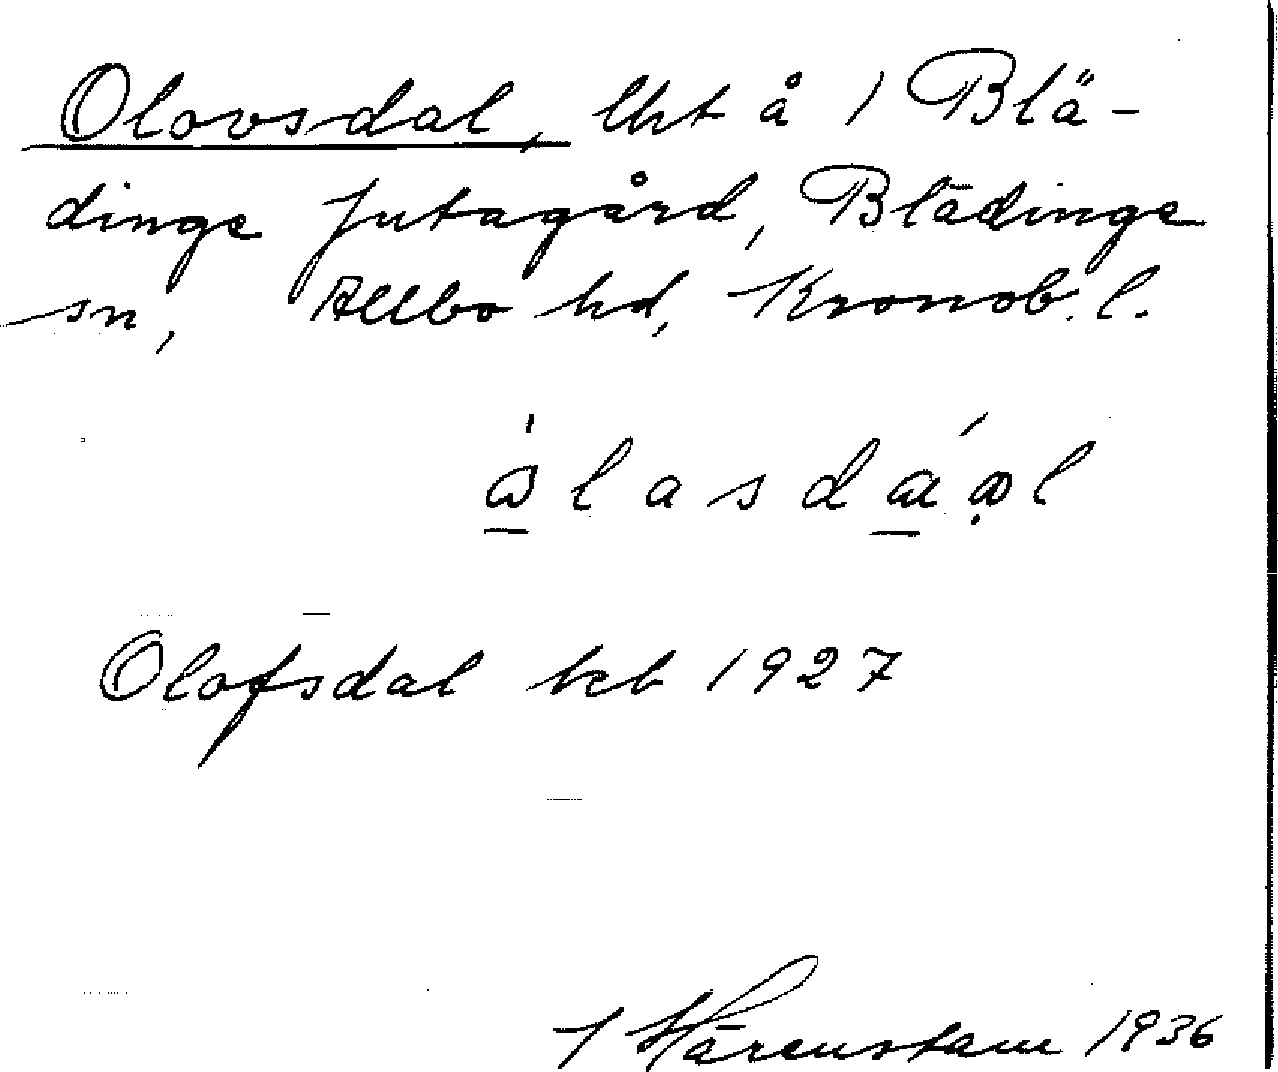 Olovsdal, lht å 1 Blä-
dinge Jutagård, Blädinge
sn, Allbo hd, Kronob. l.
Olofsdal kcb 1927
Härenstam 1936